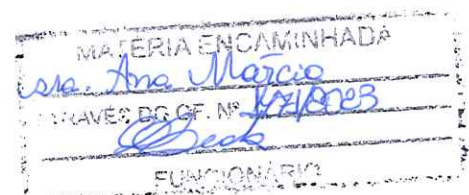 MATÉRIA ENCAMINHADA
sra. Ana Márcia
ATRAVÉS DO OF. Nº 147/2023
FUNCIONÁRIO